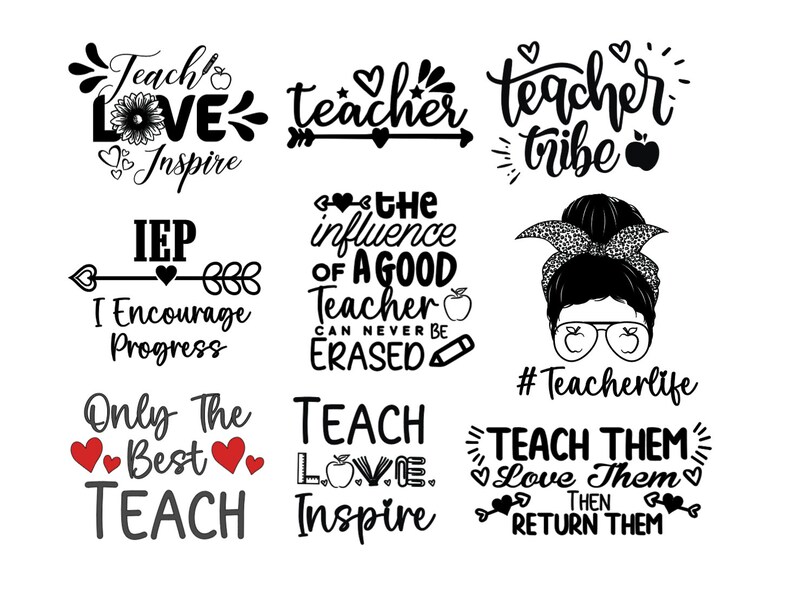 Teach
LOVE
Inspire
teacher
teacher
tribe
IEP
I Encourage
Progress
the
influence
OF A GOOD
Teacher
CAN NEVER BE
ERASED
#Teacherlife
Only The
Best
TEACH
TEACH
LOVE
Inspire
TEACH THEM
Love Them
THEN
RETURN THEM